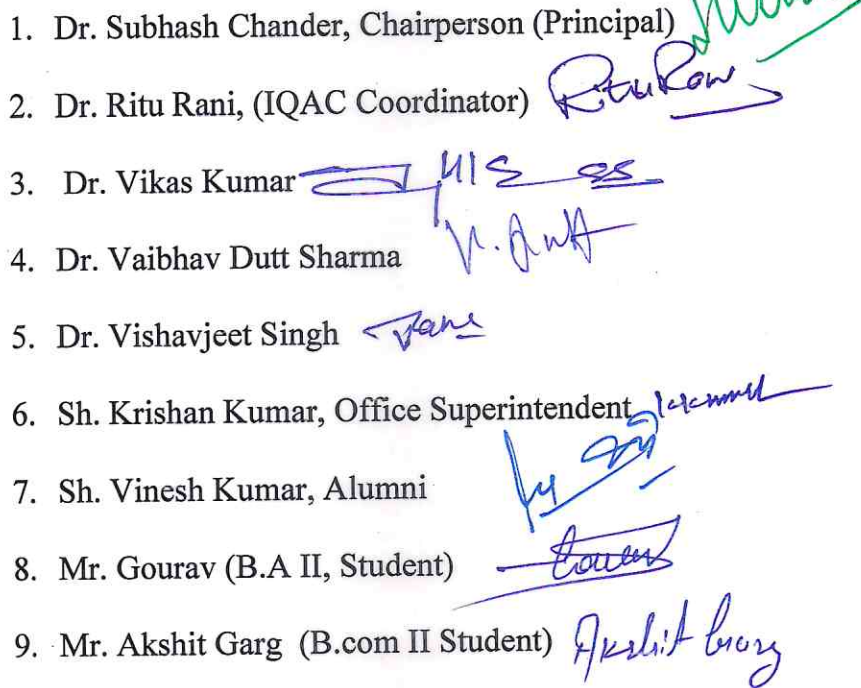 1. Dr. Subhash Chander, Chairperson (Principal)
2. Dr. Ritu Rani, (IQAC Coordinator) Ritu Rani
3. Dr. Vikas Kumar
4. Dr. Vaibhav Dutt Sharma V. Dutt
5. Dr. Vishavjeet Singh
6. Sh. Krishan Kumar, Office Superintendent
7. Sh. Vinesh Kumar, Alumni
8. Mr. Gourav (B.A II, Student)
9. Mr. Akshit Garg (B.com II Student) Akshit Garg